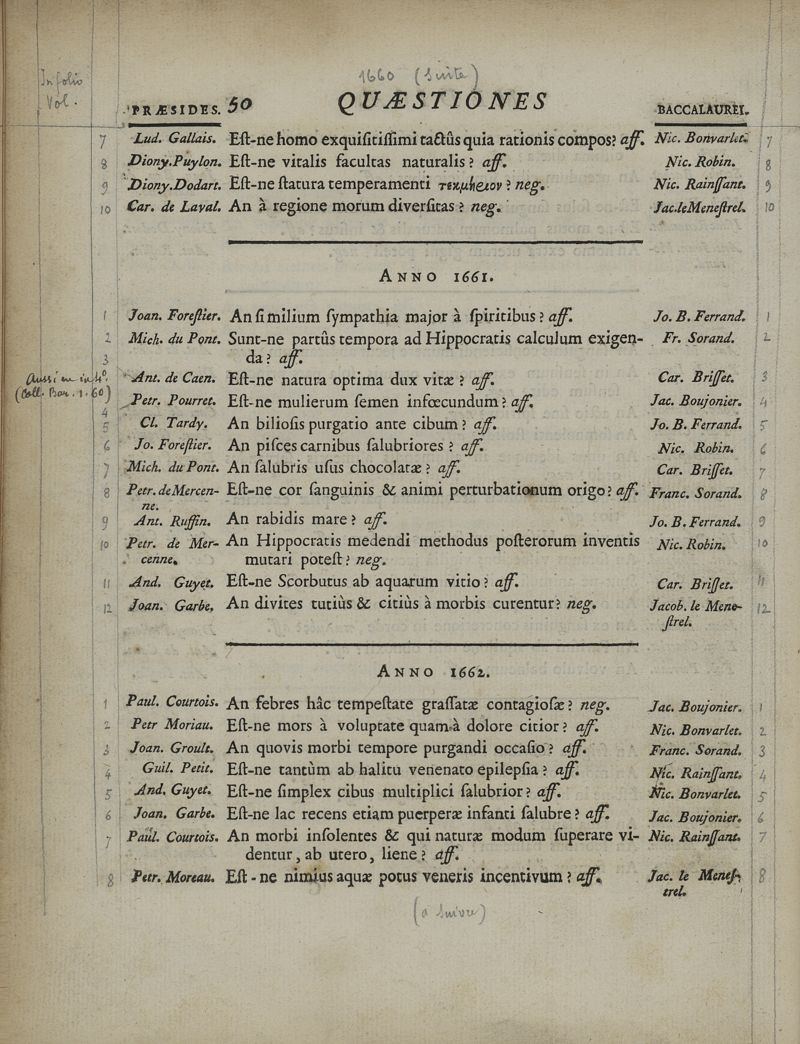 1660 (Suite)
In folio
Vol.
PRÆSIDES. 50 QUÆSTIONES BACCALAUREI.
7 Lud. Gallais. Eſt-ne homo exquiſitiſſimi tactûs quia rationis compos? aff. Nic. Bonvarlet. 7
8 Diony. Puylon. Eſt-ne vitalis facultas naturalis? aff. Nic. Robin. 8
9 Diony. Dodart. Eſt-ne ſtatura temperamenti τεκμήριον? neg. Nic. Rainſſant. 9
10 Car. de Laval. An à regione morum diverſitas? neg. Jac. le Meneſtrel. 10
ANNO 1661.
1 Joan. Foreſtier. An ſimilium ſympathia major à ſpiritibus? aff. Jo. B. Ferrand. 1
2 Mich. du Pont. Sunt-ne partûs tempora ad Hippocratis calculum exigen- Fr. Sorand. 2
da? aff.
3 Ant. de Caen. Eſt-ne natura optima dux vitæ? aff. Car. Briſſet. 3
Aussi en in 4°.
(Coll. Bar. 1.60)
4 Petr. Pourret. Eſt-ne mulierum ſemen infœcundum? aff. Jac. Boujonier. 4
5 Cl. Tardy. An bilioſis purgatio ante cibum? aff. Jo. B. Ferrand. 5
6 Jo. Foreſtier. An piſces carnibus ſalubriores? aff. Nic. Robin. 6
7 Mich. du Pont. An ſalubris uſus chocolatæ? aff. Car. Briſſet. 7
8 Petr. de Mercen- Eſt-ne cor ſanguinis & animi perturbationum origo? aff. Franc. Sorand. 8
ne.
9 Ant. Ruffin. An rabidis mare? aff. Jo. B. Ferrand. 9
10 Petr. de Mer- An Hippocratis medendi methodus poſterorum inventis Nic. Robin. 10
cenne. mutari poteſt? neg.
11 And. Guyet. Eſt-ne Scorbutus ab aquarum vitio? aff. Car. Briſſet. 11
12 Joan. Garbe. An divites tutiùs & citiùs à morbis curentur? neg. Jacob. le Mene- 12
ſtrel.
ANNO 1662.
1 Paul. Courtois. An febres hâc tempeſtate graſſatæ contagioſæ? neg. Jac. Boujonier. 1
2 Petr Moriau. Eſt-ne mors à voluptate quam à dolore citior? aff. Nic. Bonvarlet. 2
3 Joan. Groult. An quovis morbi tempore purgandi occaſio? aff. Franc. Sorand. 3
4 Guil. Petit. Eſt-ne tantùm ab halitu venenato epilepſia? aff. Nic. Rainſſant. 4
5 And. Guyet. Eſt-ne ſimplex cibus multiplici ſalubrior? aff. Nic. Bonvarlet. 5
6 Joan. Garbe. Eſt-ne lac recens etiam puerperæ infanti ſalubre? aff. Jac. Boujonier. 6
7 Paul. Courtois. An morbi inſolentes & qui naturæ modum ſuperare vi- Nic. Rainſſant. 7
dentur, ab utero, liene? aff.
8 Petr. Moreau. Eſt-ne nimius aquæ potus veneris incentivum? aff. Jac. le Meneſ- 8
trel.
(a Suivre)